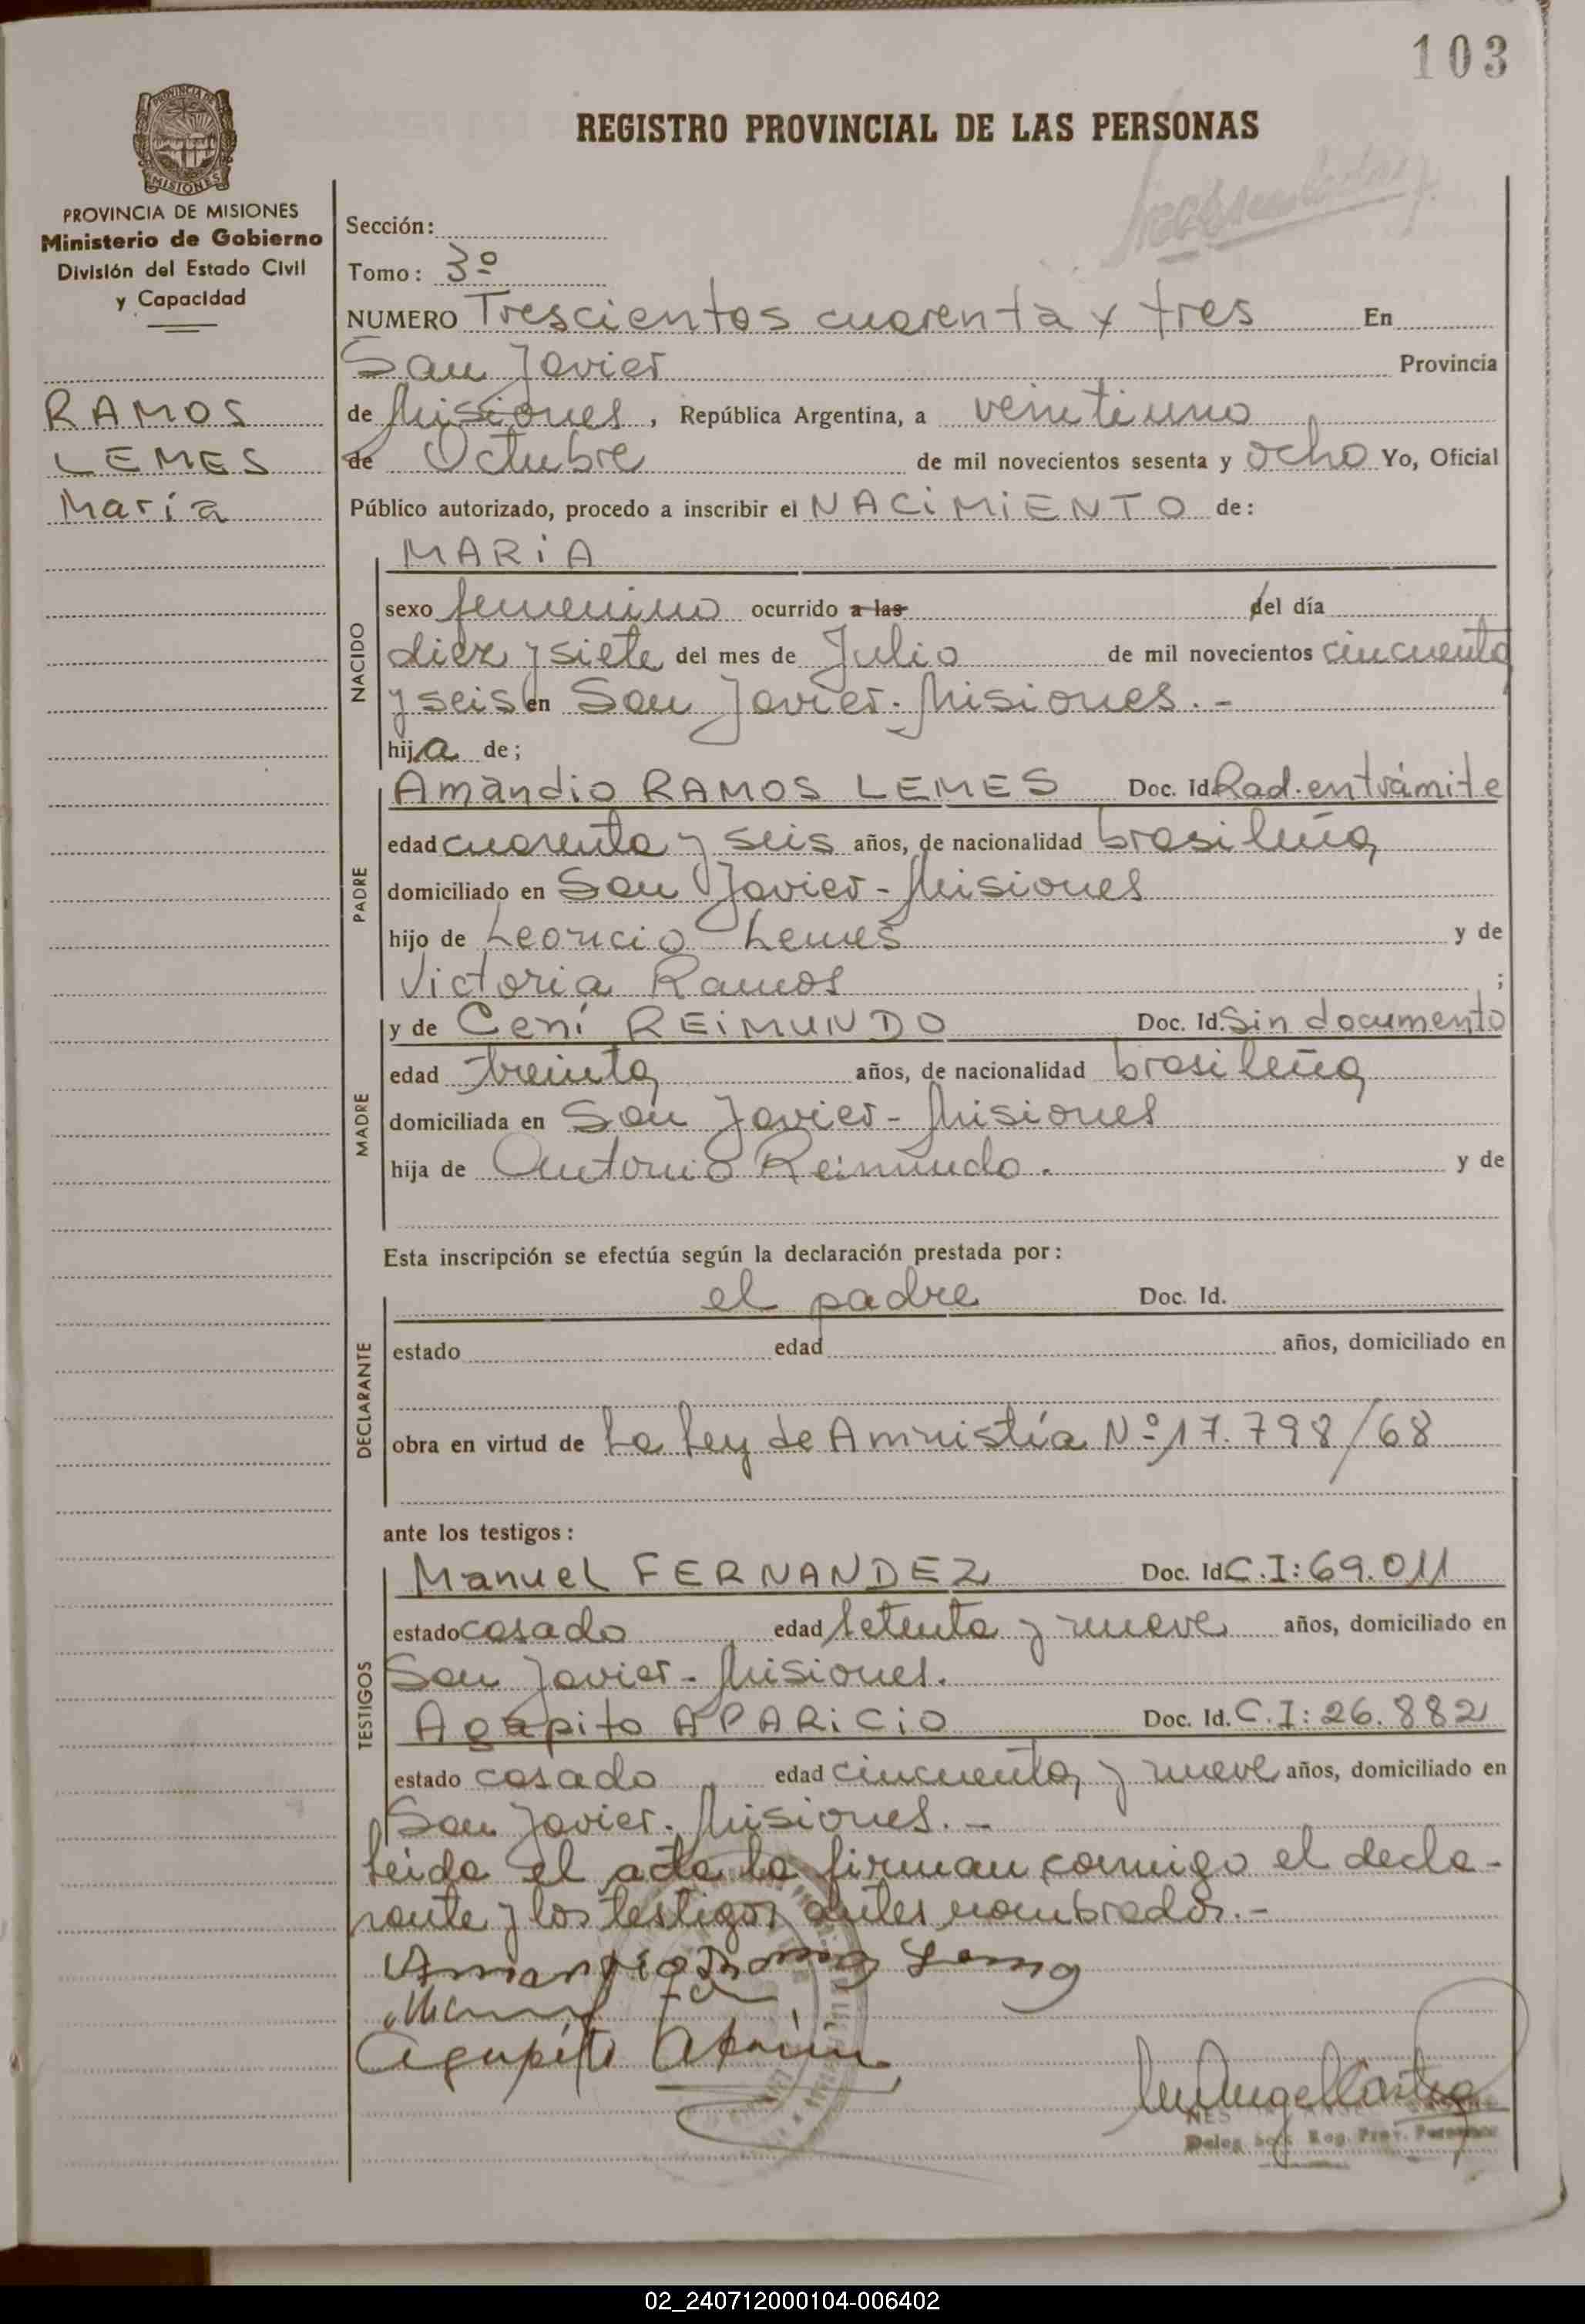 103
PROVINCIA DE MISIONES
REGISTRO PROVINCIAL DE LAS PERSONAS
PROVINCIA DE MISIONES
Ministerio de Gobierno
División del Estado Civil
y Capacidad
RAMOS
LEMES
María
Sección:
Tomo: 3º
NUMERO Trescientos cuarenta y tres En
San Javier Provincia
de Misiones, República Argentina, a veintiuno
de Octubre de mil novecientos sesenta y ocho Yo, Oficial
Público autorizado, procedo a inscribir el NACiMiENTO de:
MARiA
NACIDO
sexo femenino ocurrido a las del día
diez y siete del mes de Julio de mil novecientos cincuenta
y seis en San Javier. Misiones.-
hija de;
PADRE
Amandio RAMOS LEMES Doc. Id. Rad. en trámite
edad cuarenta y seis años, de nacionalidad brasileña
domiciliado en San Javier - Misiones
hijo de Leoncio Lemes y de
Victoria Ramos ;
MADRE
y de Cení REiMUNDO Doc. Id. Sin documento
edad treinta años, de nacionalidad brasileña
domiciliada en San Javier - Misiones
hija de Antonio Reimundo. y de
Esta inscripción se efectúa según la declaración prestada por:
DECLARANTE
el padre Doc. Id.
estado edad años, domiciliado en
obra en virtud de La Ley de Amnistía Nº 17.798/68
ante los testigos:
TESTIGOS
Manuel FERNANDEZ Doc. Id. C.I: 69.011
estado casado edad setenta y nueve años, domiciliado en
San Javier - Misiones.
Agapito APARiCiO Doc. Id. C.I: 26.882
estado casado edad cincuenta y nueve años, domiciliado en
San Javier. Misiones.-
Leida el acta la firman conmigo el decla-
rante y los testigos antes nombrados.-
Agapito
Deleg. Reg. Prov. Personas
02_240712000104-006402